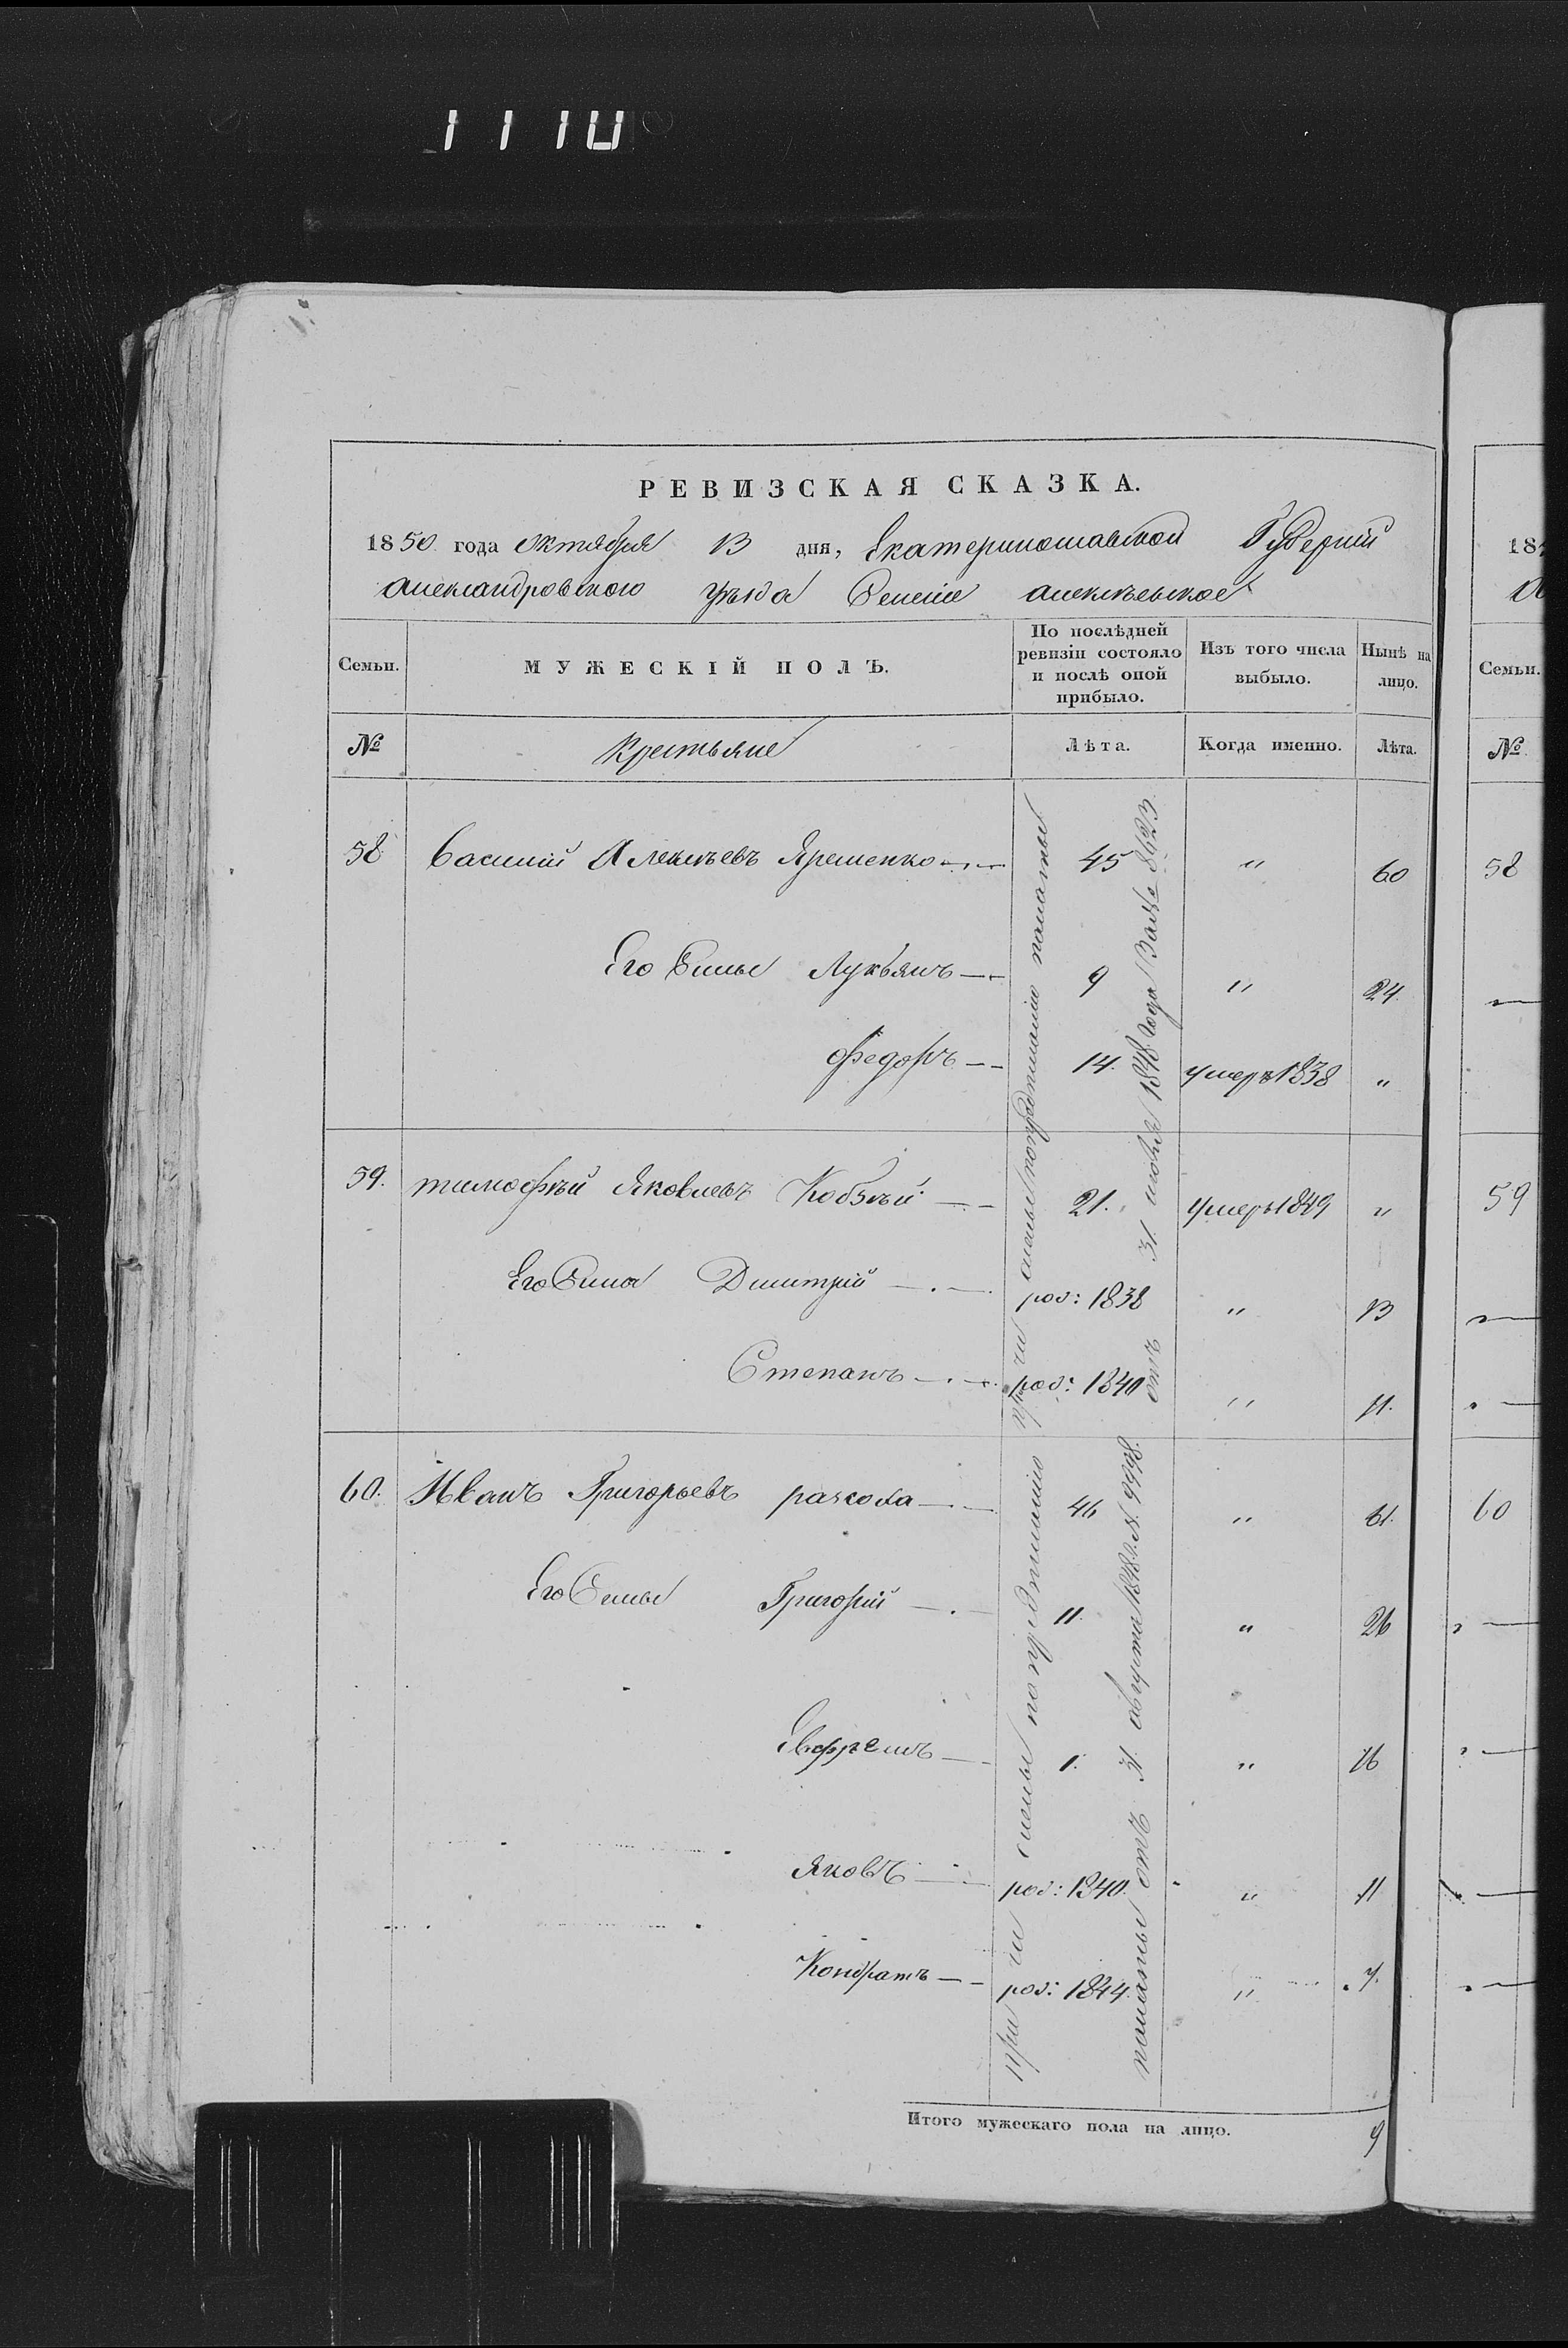 1110
РЕВИЗСКАЯ СКАЗКА.
1850 года октября 13 дня, Екатеринославской Губерніи
Александровского уѣзда Селеніе алексѣевское
Семьи. МУЖЕСКІЙ ПОЛЪ. По послѣдней ревизіи состояло и послѣ оной прибыло. Изъ того числа выбыло. Нынѣ на лицо.
№ Крестьяне Лѣта. Когда именно. Лѣта.
58 Василій Алексѣевъ Ярешенко 45 " 60
Его Сыны Лукьянъ 9 " 24.
Федоръ 14. умеръ 1838 "
59. тимофѣй Яковлевъ Кобзѣй 21. умеръ 1849 "
Его Сына Дмитрій род: 1838 " 13
Степанъ род: 1840 " 11.
60. Иванъ Григорьевъ рахсоха 46 " 61.
Его Сыны Григорій 11. " 26
Евфремъ 1. " 16
Яковъ род: 1840. " 11
Кондратъ род: 1844. " 7.
причислены по предписанію палаты
отъ 31 июля 1848 года За № 8623.
причислены по предписанію
палаты отъ 31 августа 1848 г. № 9998.
Итого мужескаго пола на лицо. 9
184
Семьи.
№
58
59
60